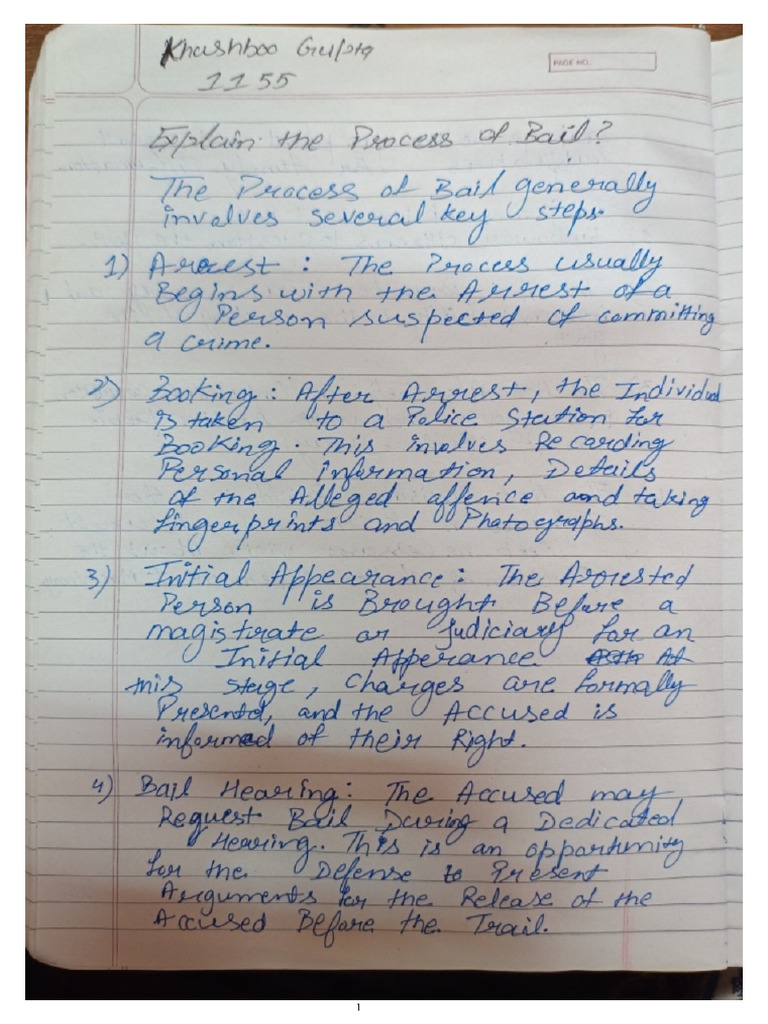 Khushboo Gupta
PAGE NO.
1155
Explain the Process of Bail?
The Process of Bail generally
involves several key steps.
1) Arrest : The Process usually
Begins with the Arrest of a
Person suspected of committing
a crime.
2) Booking : After Arrest, the Individual
is taken to a Police Station for
Booking. This involves Recarding
Personal information, Details
of the Alleged affence and taking
fingerprints and Photographs.
3) Initial Appearance : The Arrested
Person is Brought Before a
magistrate or Judiciary for an
Initial Apperance At
this stage, charges are formally
Presentd, and the Accused is
informed of their Right.
4) Bail Hearing : The Accused may
Request Bail During a Dedicated
Hearing. This is an opportunity
for the Defense to Present
Arguments for the Release of the
Accused Before the Trail.
1